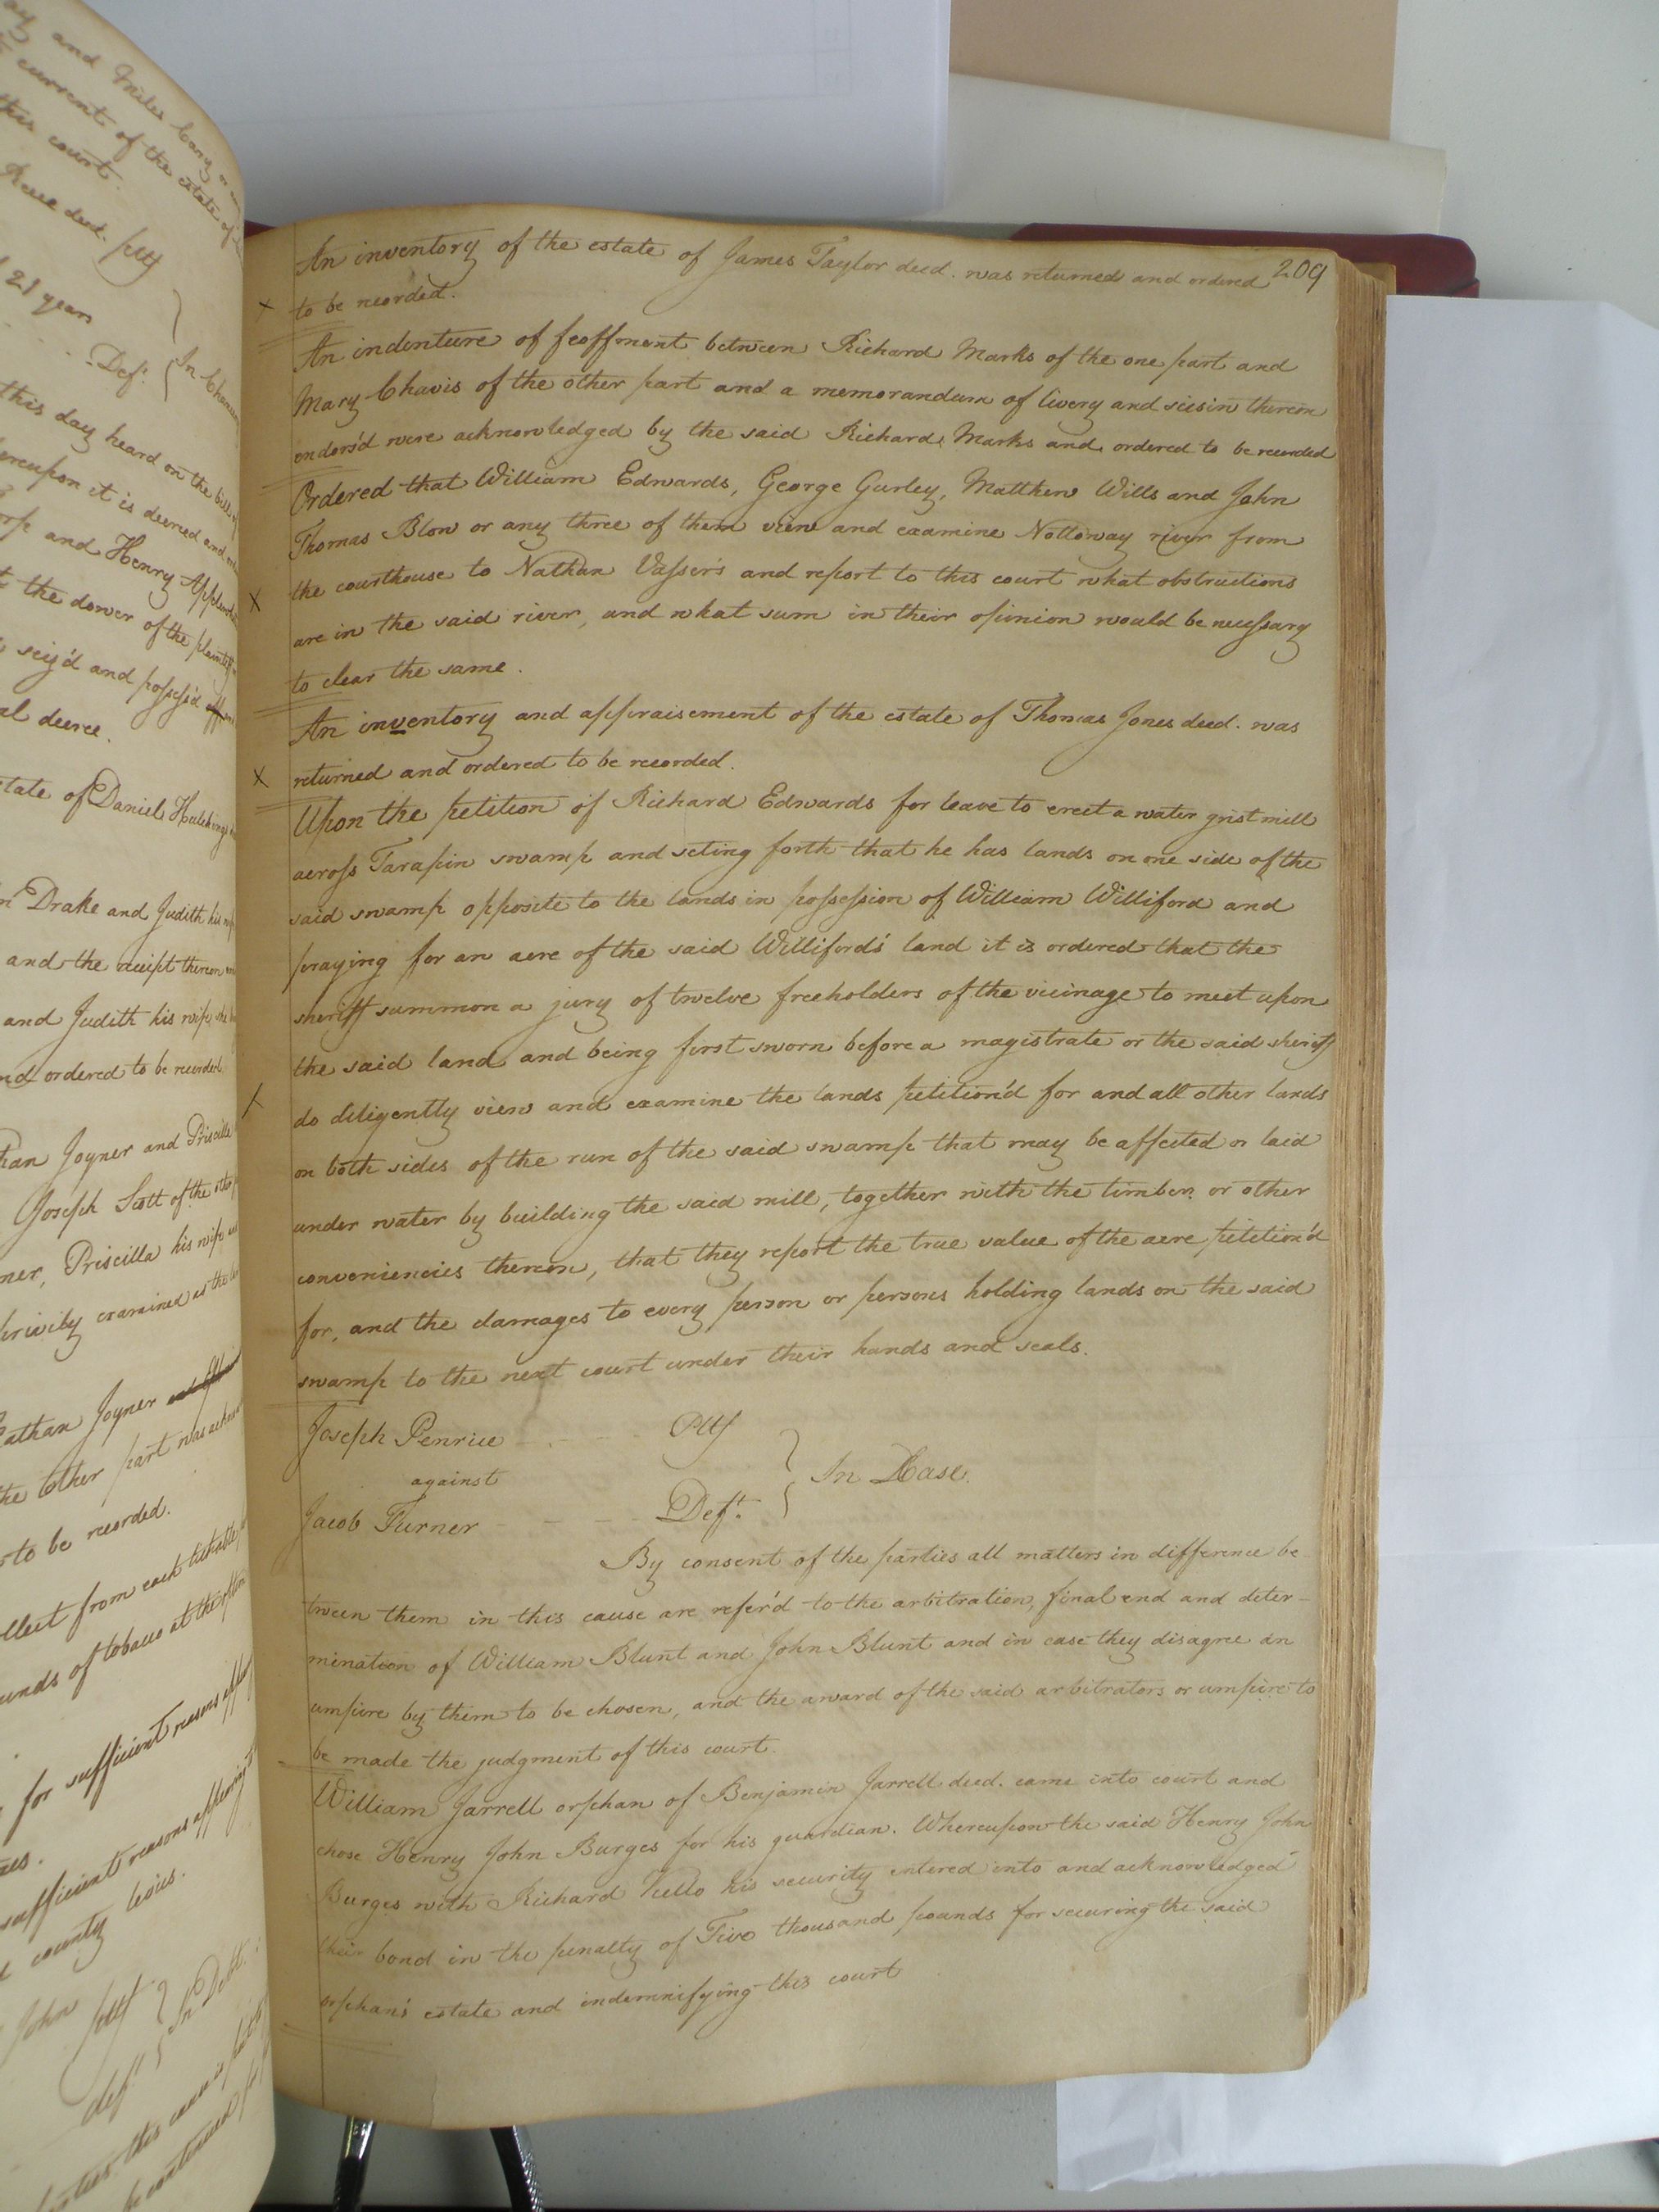 ay and Miles Cary
current of the estate of
this court.
deed. pltf
21 years
Def.t
In Chancery
this day heard on the bill
ereupon it is decreed and
and Henry Applewhite
the dower of the plaintif
seiz'd and possess'd
al decree.
state of Daniel
Drake and Judith his
and the receipt thereon
and Judith his wife, she
nd ordered to be recorded.
than Joyner and Priscilla
Joseph Scott of the other
ner, Priscilla his wife
privily examined as the law
athan Joyner
the other part was
to be recorded.
llect from each tithable
unds of tobacco at the
for sufficient reasons
sufficient reasons appearing
county levies.
John pltf
def.t
In Debt.
209
An inventory of the estate of James Taylor deed. was returned and ordered
x to be recorded.
An indenture of feoffment between Richard Marks of the one part and
Mary Chavis of the other part and a memorandum of livery and seisin thereon
endors'd were acknowledged by the said Richard Marks and ordered to be recorded
Ordered that William Edwards, George Gurley, Matthew Wills and John
Thomas Blow or any three of them view and examine Nottoway river from
x the courthouse to Nathan Vasser's and report to this court what obstructions
are in the said river, and what sum in their opinion would be necessary
to clear the same.
An inventory and appraisement of the estate of Thomas Jones deed. was
x returned and ordered to be recorded.
Upon the petition of Richard Edwards for leave to erect a water grist mill
across Tarapin swamp and seting forth that he has lands on one side of the
said swamp opposite to the lands in possession of William Williford and
praying for an acre of the said Williford's land it is ordered that the
sheriff summon a jury of twelve freeholders of the vicinage to meet upon
the said land and being first sworn before a magistrate or the said sheriff
x do diligently view and examine the lands petition'd for and all other lands
on both sides of the run of the said swamp that may be affected or laid
under water by building the said mill, together with the timber or other
conveniencies thereon, that they report the true value of the acre petition'd
for, and the damages to every person or persons holding lands on the said
swamp to the next court under their hands and seals.
Joseph Penrice Pltf
against
In Case.
Jacob Turner Def.t
By consent of the parties all matters in difference be
tween them in this cause are refer'd to the arbitration, final end and deter-
mination of William Blunt and John Blunt and in case they disagree an
umpire by them to be chosen, and the award of the said arbitrators or umpire to
be made the judgment of this court.
William Jarrell orphan of Benjamin Jarrell deed. came into court and
chose Henry John Burges for his guardian. Whereupon the said Henry John
Burges with Richard Kello his security entered into and acknowledged
their bond in the penalty of Five thousand pounds for securing the said
orphan's estate and indemnifying this court